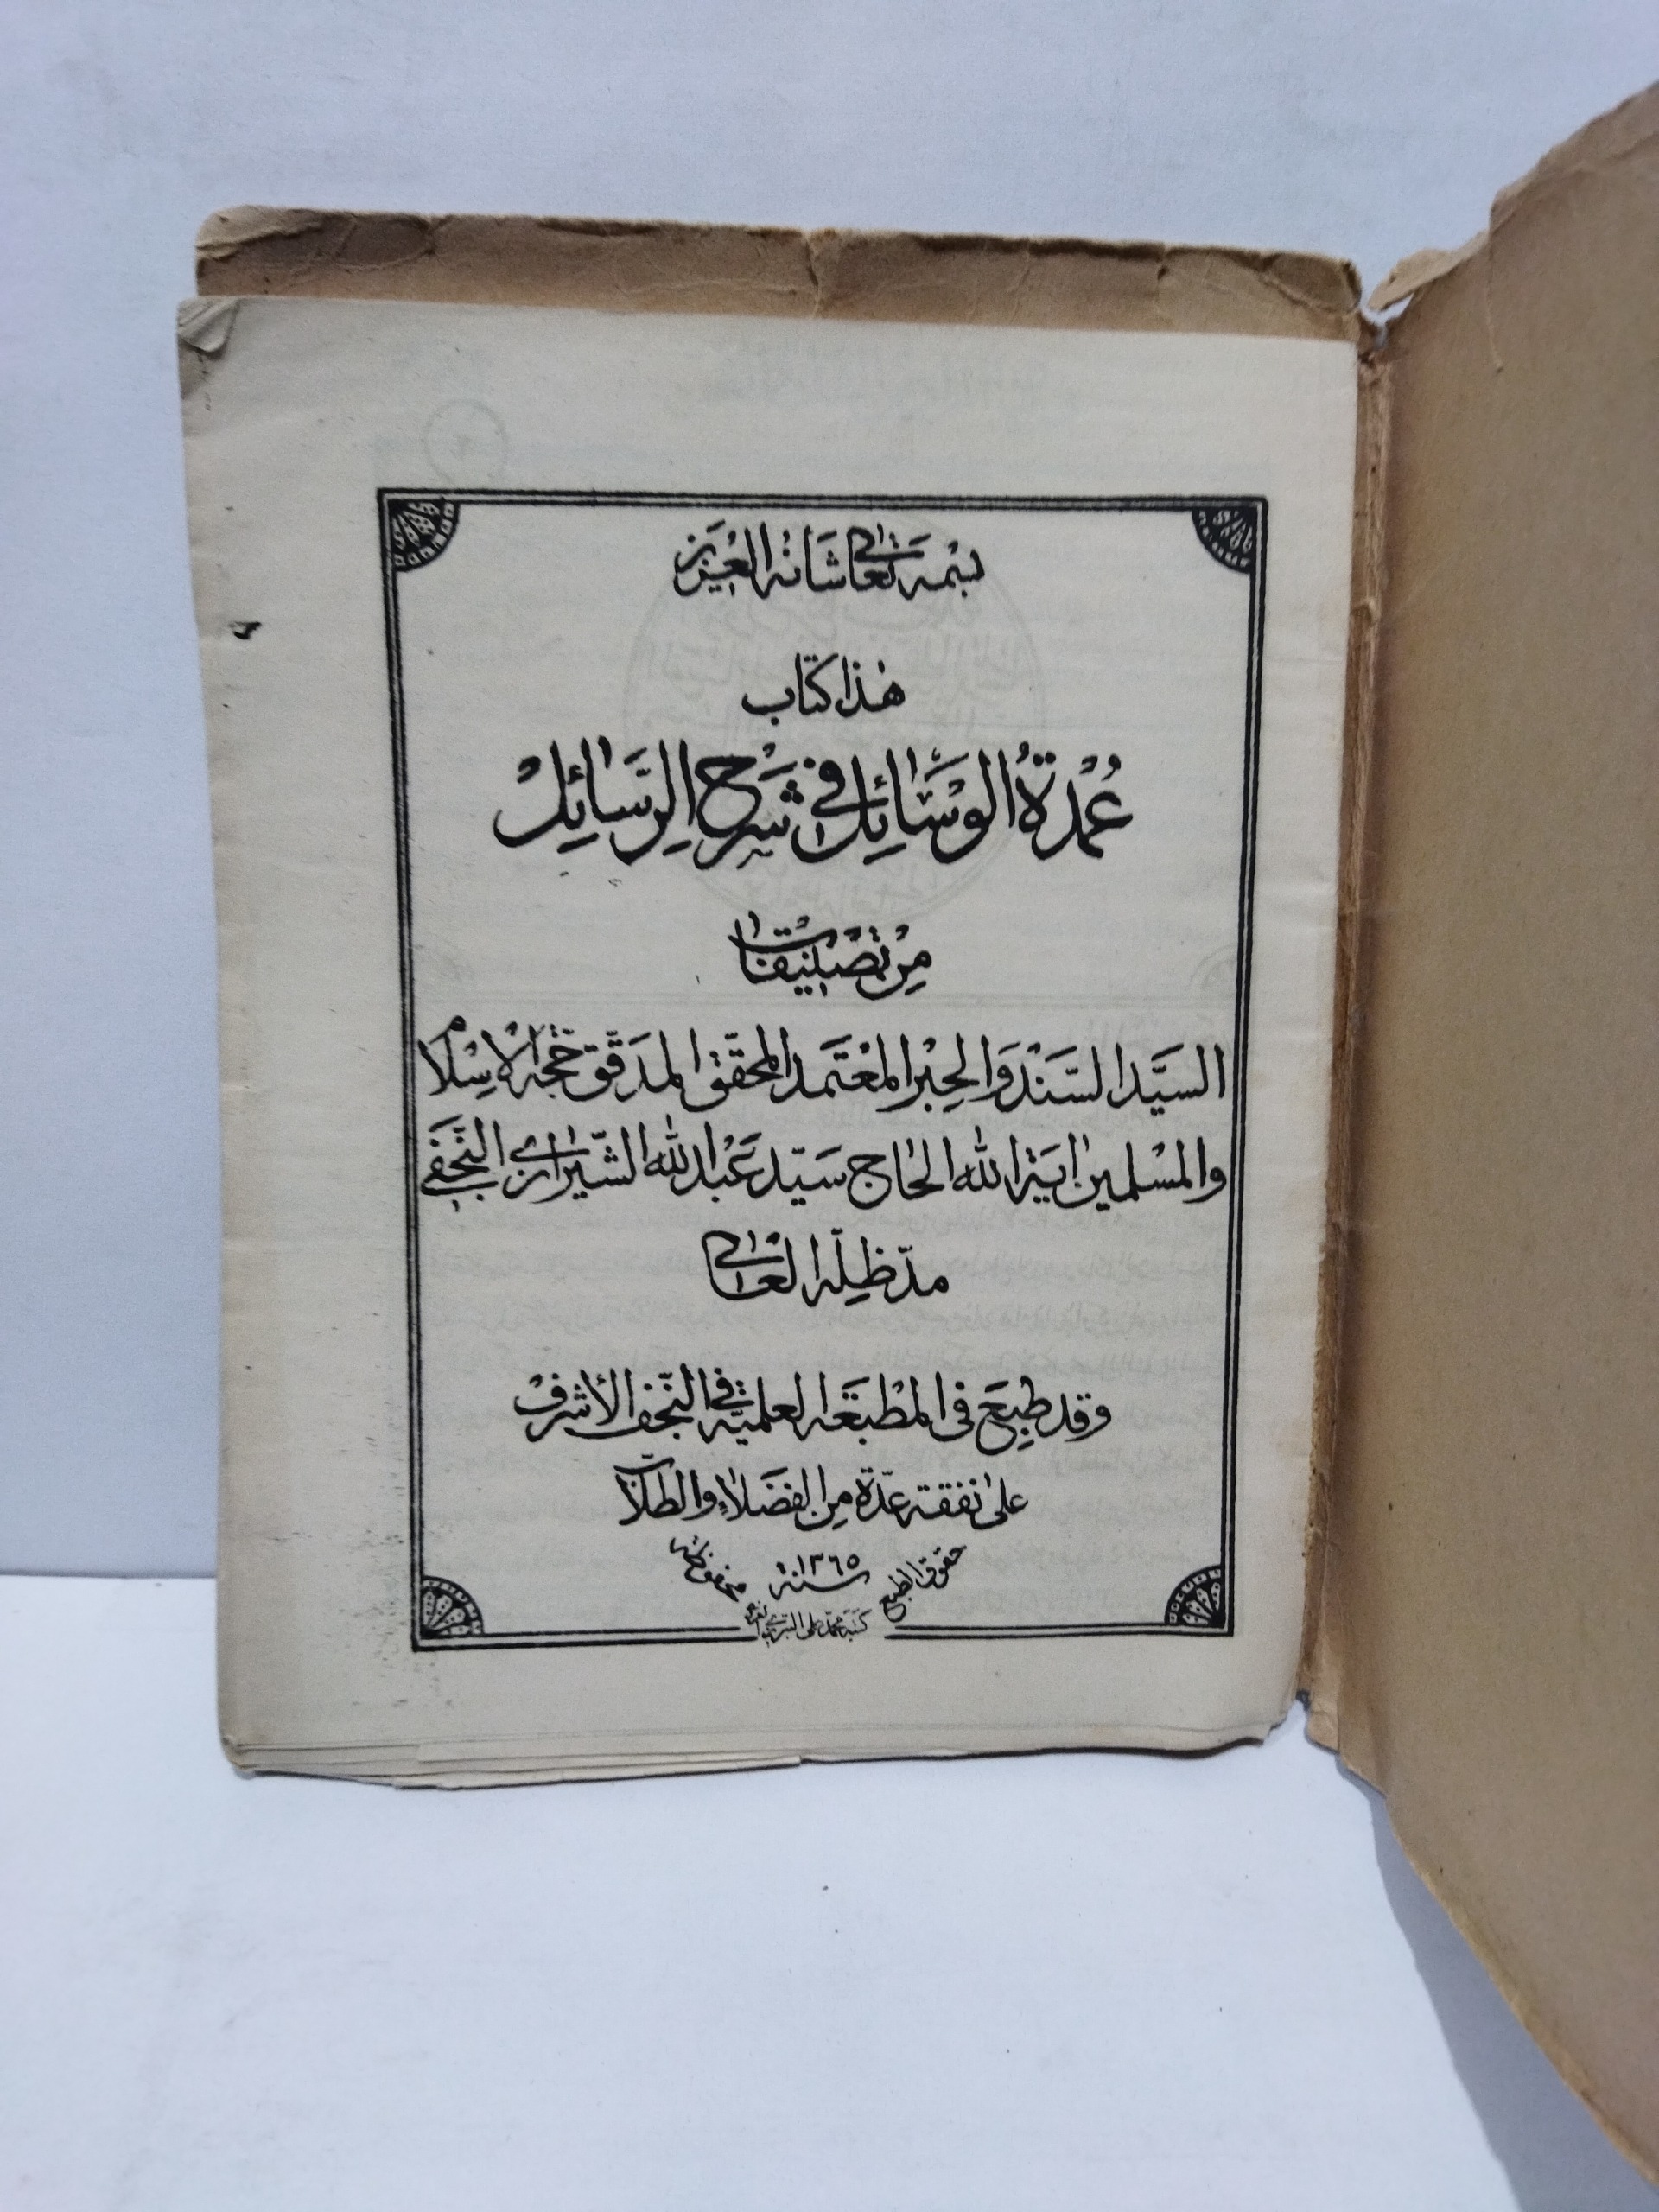 بسمه تعالى شأنه العزيز
هذا كتاب
عُمدةُ الوسَائِل في شَرح الرسَائِل
مِن تصنيفات
السيَّد السَنَد وَالحِبْر المعْتَمَد المحقّق المدَقّق حجّة الاسِلام
والمسْلمين اية الله الحاج سَيّد عَبْد الله الشّيرازي النجَفي
مدّ ظِلّه العَالى
وقد طبِعَ فى المطْبَعَة العلميّة فى النجَف الأشرف
على نفقة عدّة مِن الفضَلاءِ والطلّاب
حقوق الطبع محفوظة
سنة ١٣٦٥
كتبه محمد على التبريزي الغروي